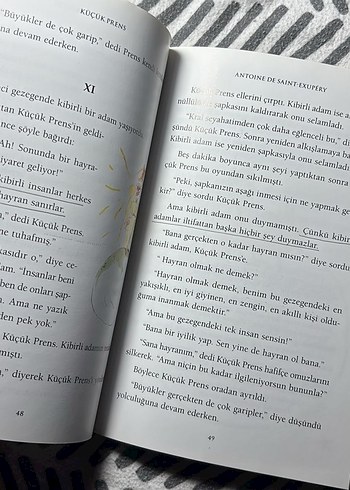 KÜÇÜK PRENS
"Büyükler de çok garip," dedi Prens
na devam ederken.
XI
ci gezegende kibirli bir adam yaşıyordu.
tan Küçük Prens'in geldi-
nce şöyle bağırdı:
Ah! Sonunda bir hayra-
iyaret geliyor!"
kibirli insanlar herkes
hayran sanırlar.
," dedi Küçük Prens.
ne tuhafmış."
kasıdır o," diye ce-
am. "İnsanlar beni
de onları şap-
. Ama ne yazık
den pek yok."
Küçük Prens. Kibirli
mıştı.
," diyerek Küçük Prens'i
48
ANTOINE DE SAINT-EXUPÉRY
Küçük Prens ellerini çırptı. Kibirli adam ise a-
nüllülük şapkasını kaldırarak onu selamladı.
"Kral seyahatimden çok daha eğlenceli bu," di
şündü Küçük Prens. Sonra yeniden alkışlamaya ba
Kibirli adam ise yeniden şapkasıyla onu selamladı
Beş dakika boyunca aynı şeyi yaptıktan sonra
çük Prens bu oyundan sıkılmıştı.
"Peki, şapkanızın aşağı inmesi için ne yapmak ge
kir?" diye sordu Küçük Prens.
Ama kibirli adam onu duymamıştı. Çünkü kibir
adamlar iltifattan başka hiçbir şey duymazlar.
"Bana gerçekten o kadar hayran mısın?" diye sordu
kibirli adam, Küçük Prens'e.
"Hayran olmak ne demek?"
"Hayran olmak demek, benim bu gezegendeki en
yakışıklı, en iyi giyinen, en zengin, en akıllı kişi oldu-
ğuma inanmak demektir."
"Ama bu gezegendeki tek insan sensin!"
"Bana bir iyilik yap. Sen yine de hayran ol bana."
"Sana hayranım," dedi Küçük Prens hafifçe omuzlarını
silkerek. "Ama niçin bu kadar ilgileniyorsun bununla?"
Böylece Küçük Prens oradan ayrıldı.
"Büyükler gerçekten de çok garipler," diye düşündü
yolculuğuna devam ederken.
49